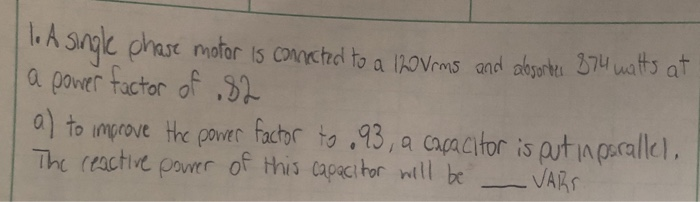 1. A single phase motor is connected to a 120Vrms and absorbes 874 watts at
a power factor of .82
a) to improve the power factor to .93, a capacitor is put in parallel.
The reactive power of this capacitor will be ___ VARs